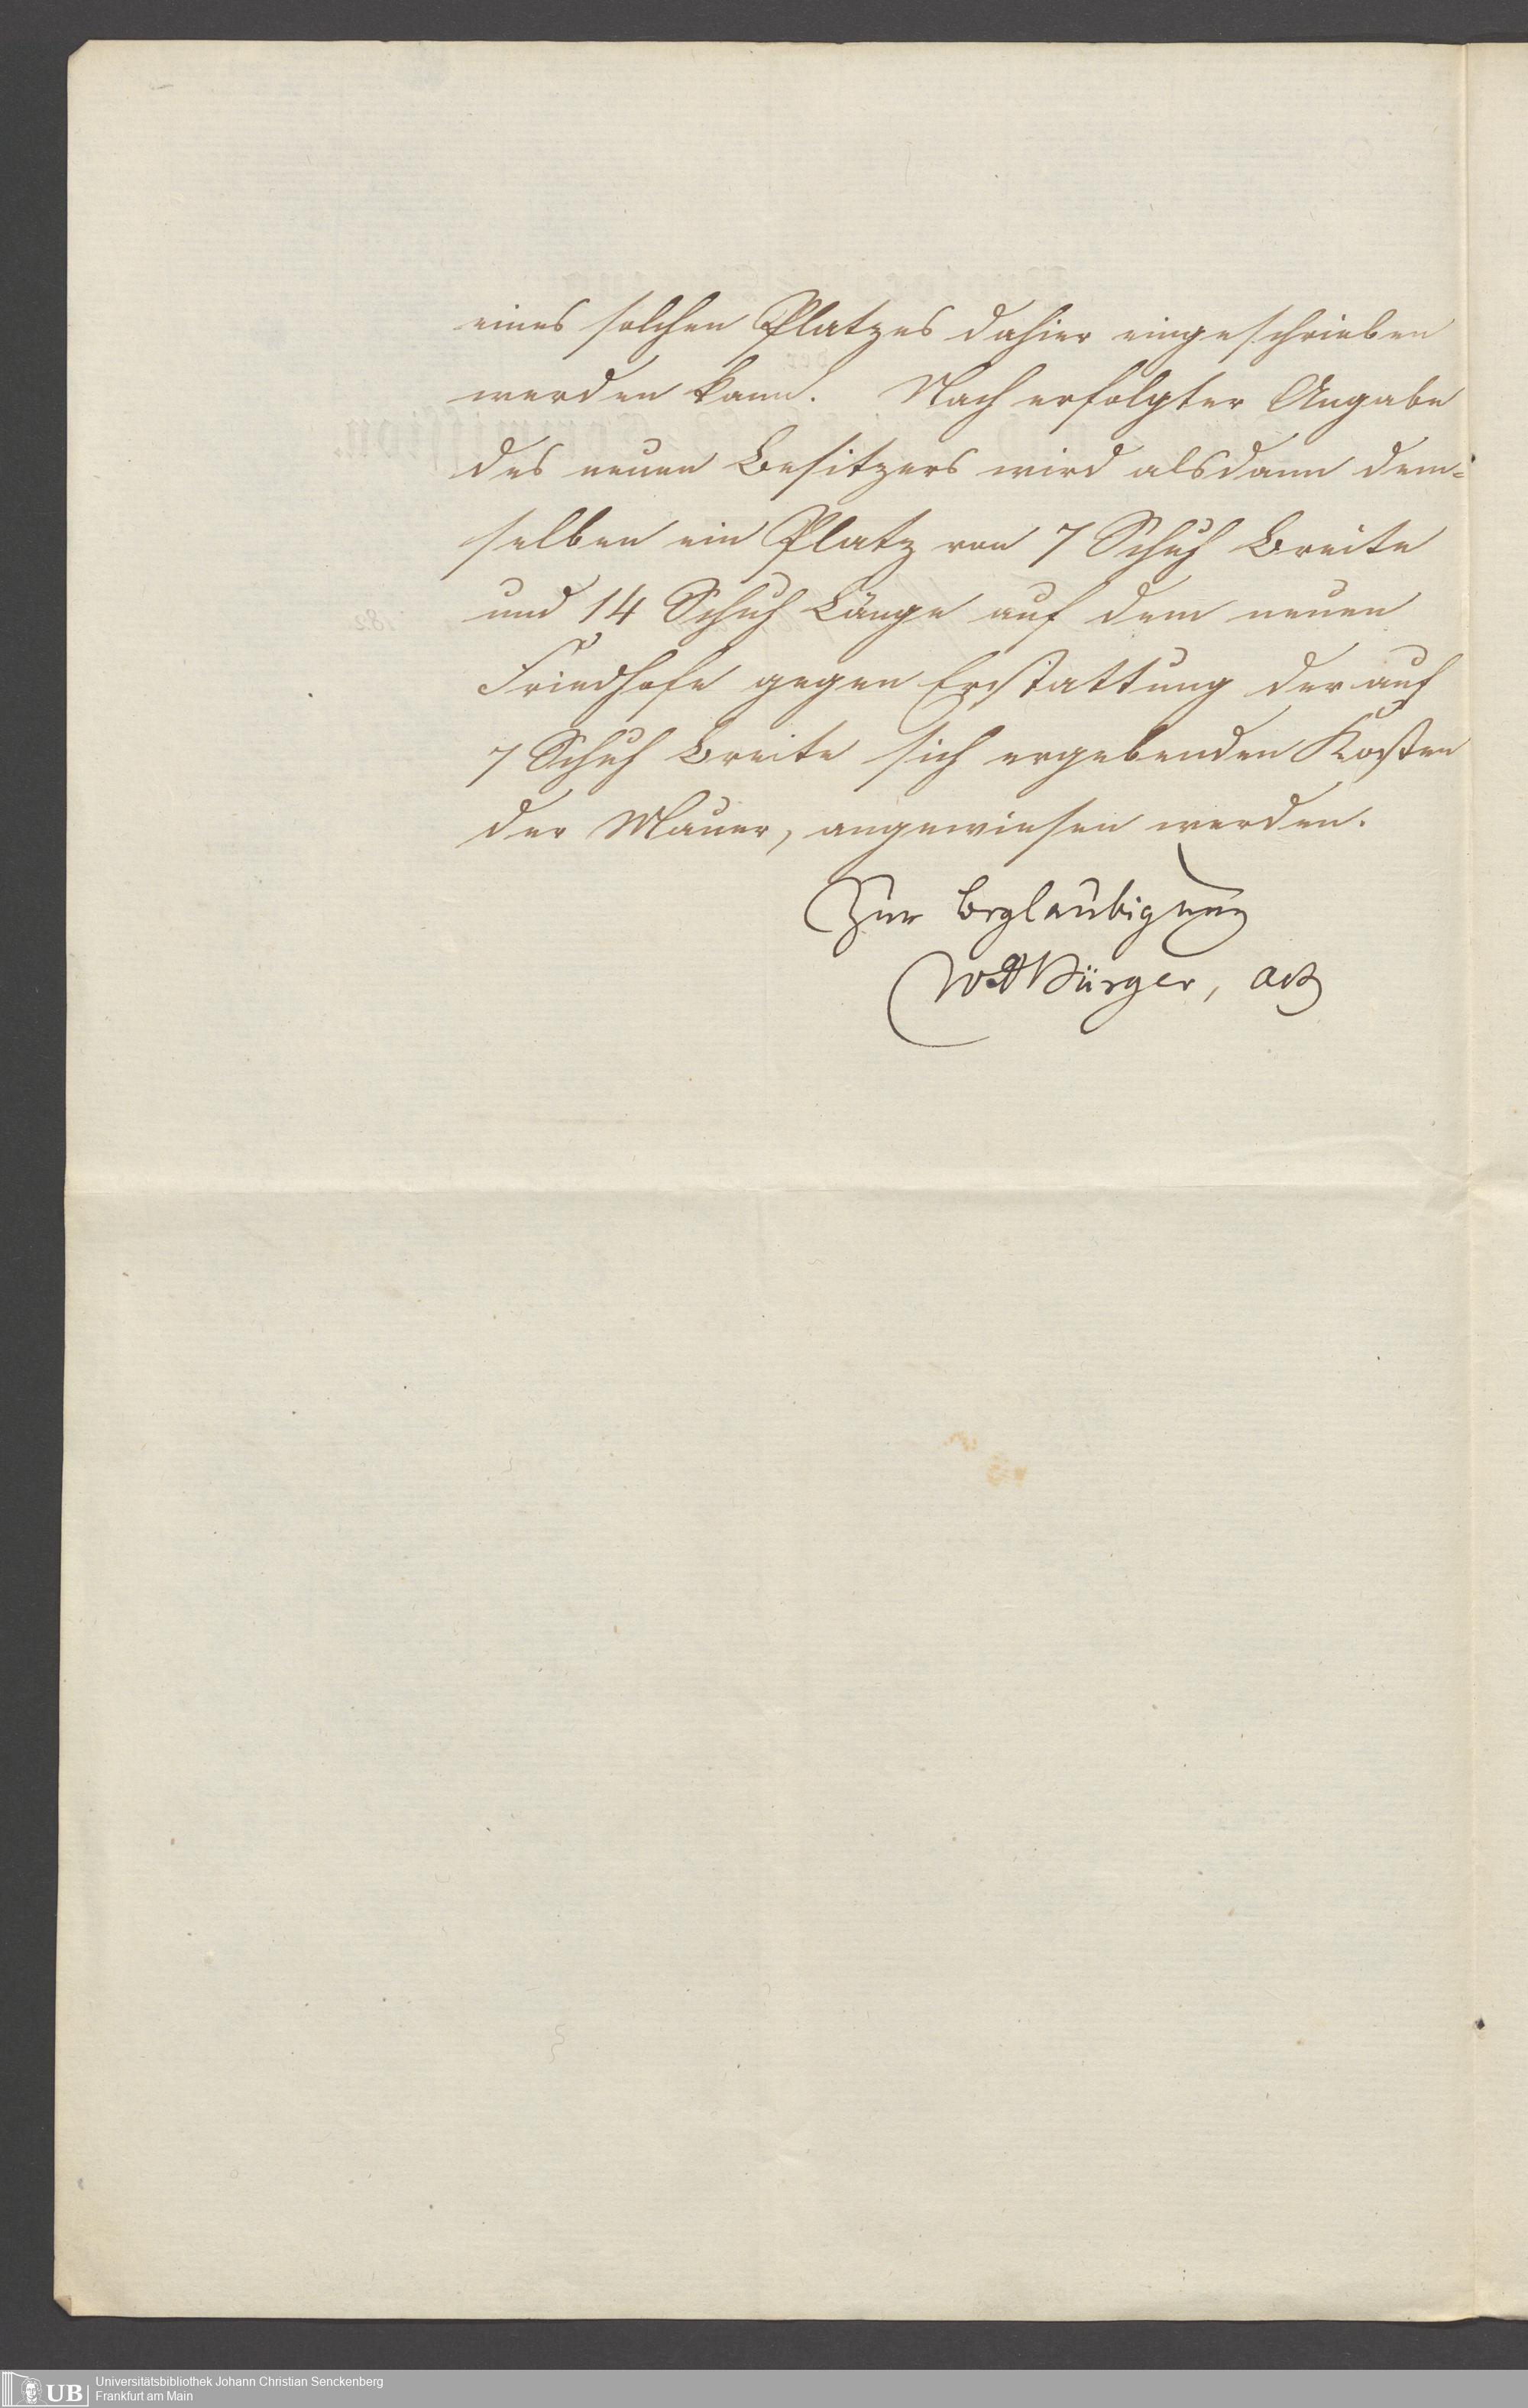 eines solchen Platzes dahier eingeschrieben
werden kann. Nach erfolgter Angabe
des neuen Besitzers wird alsdann dem-
selben ein Platz von 7 Schuh Breite
und 14 Schuh Länge auf dem neuen
Friedhofe gegen Erstattung der auf
7 Schuh Breite sich ergebenden Kosten
der Mauer, angewiesen werden.
Zur Beglaubigung
Bürger, act
UB
Universitätsbibliothek Johann Christian Senckenberg
Frankfurt am Main